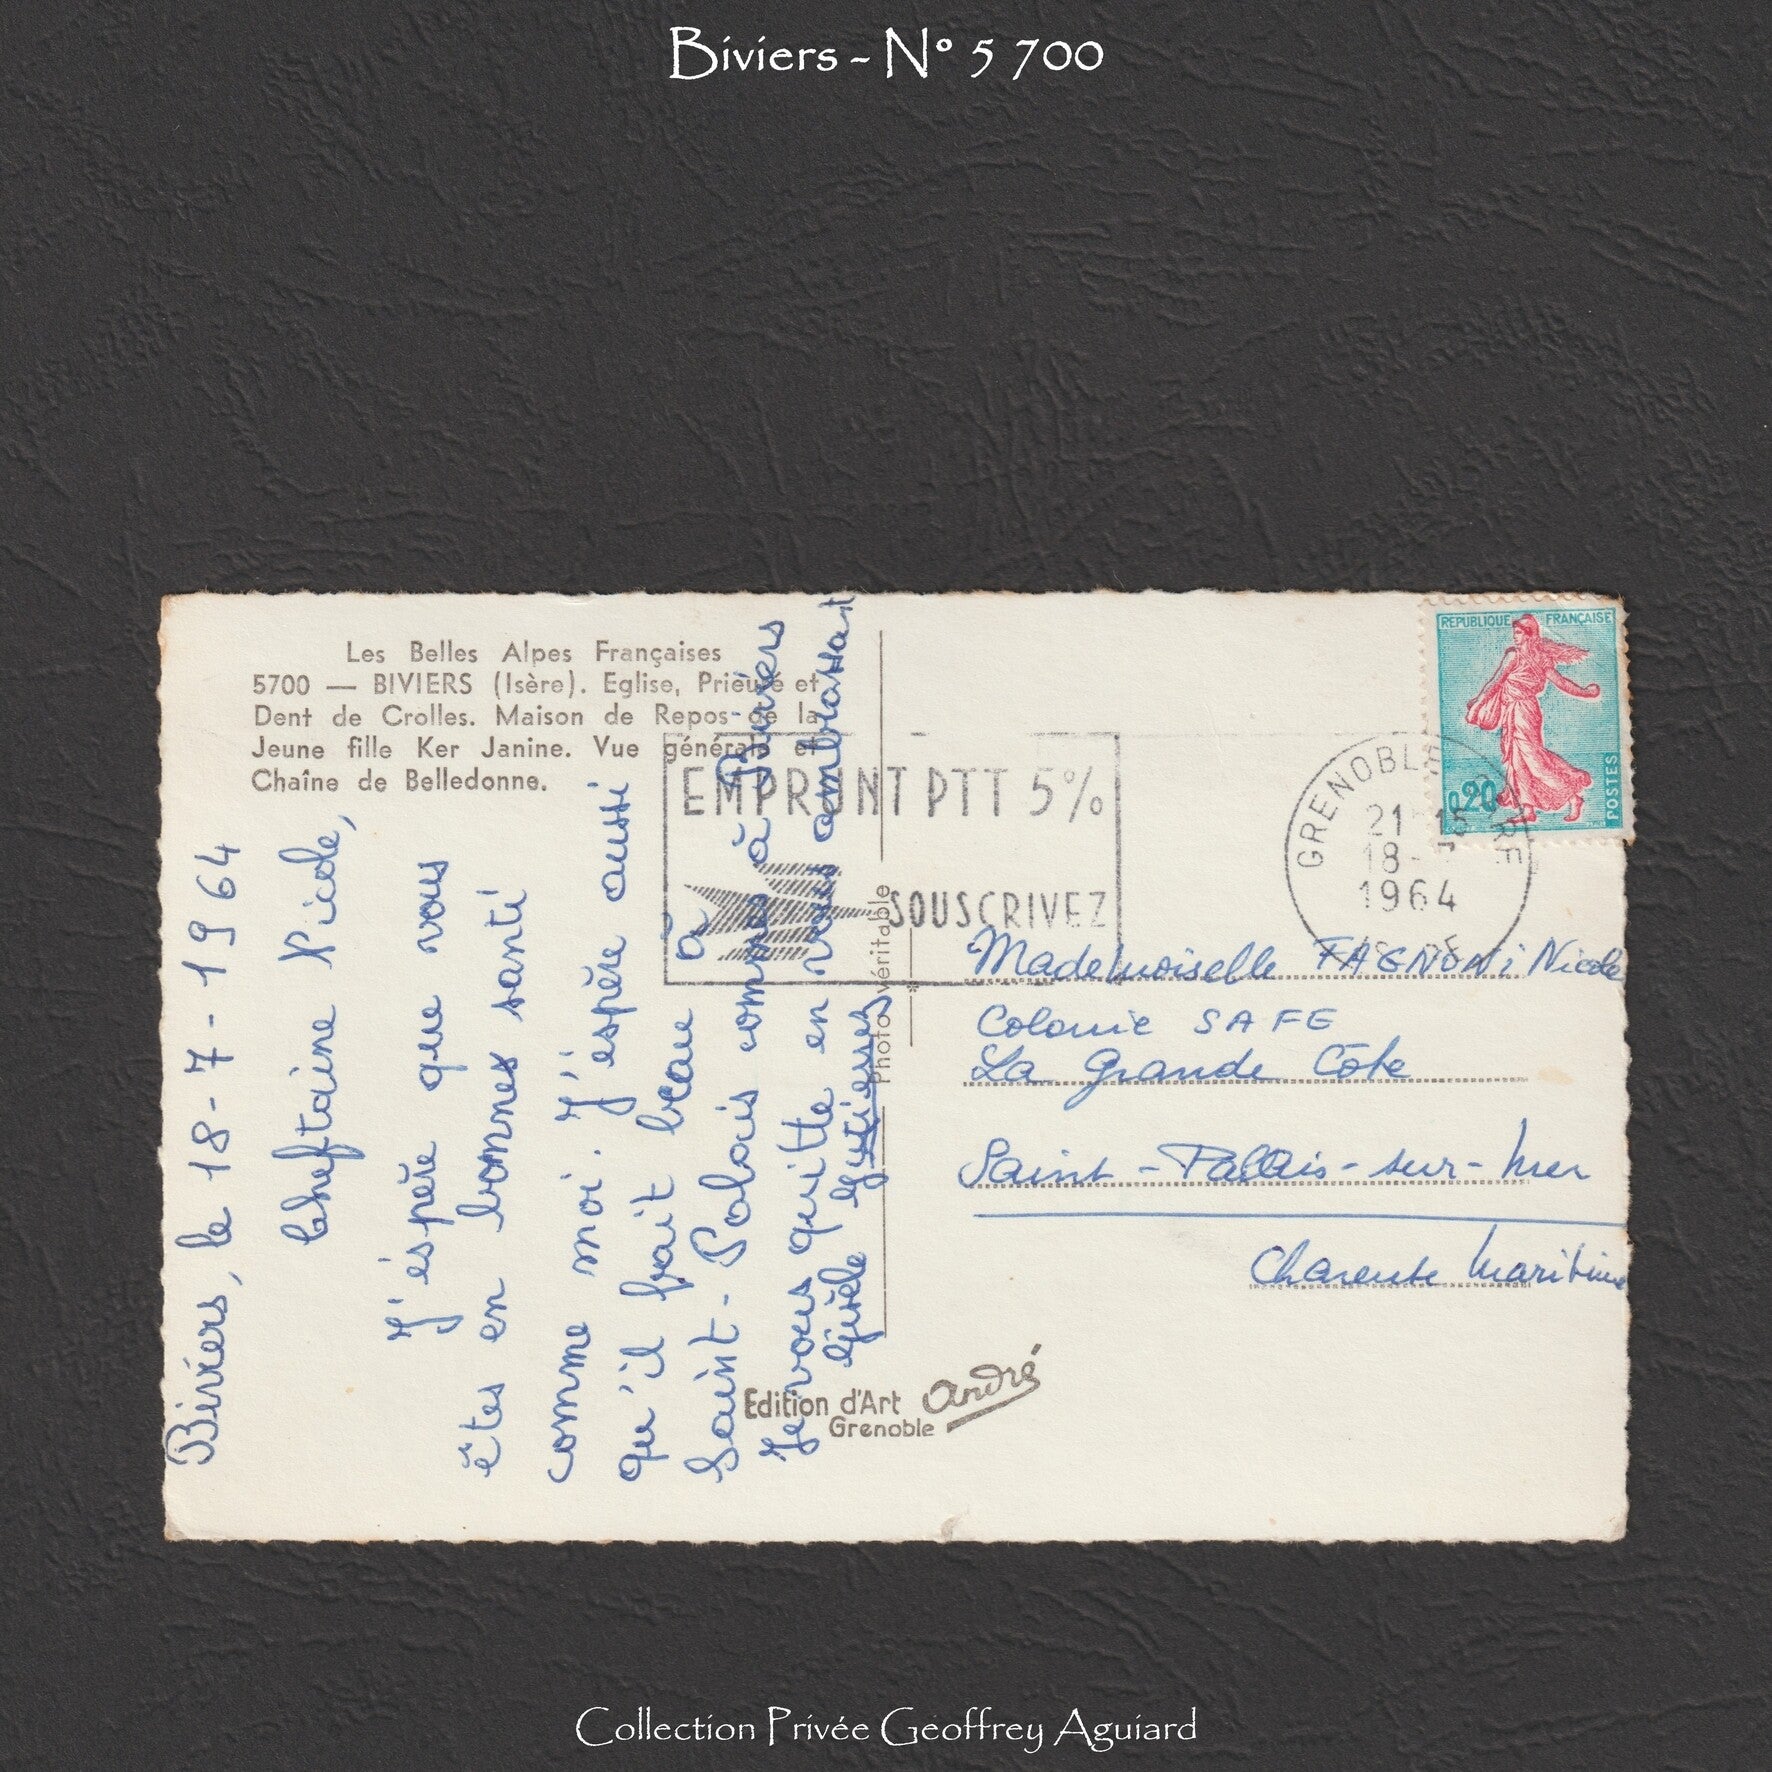 Biviers - N° 5 700
Les Belles Alpes Françaises
5700 — BIVIERS (Isère). Eglise, Prieuré et
Dent de Crolles. Maison de Repos de la
Jeune fille Ker Janine. Vue générale et
Chaîne de Belledonne.
Biviers, le 18-7-1964
Cheftaine Nicole,
J'éspère que vous
êtes en bonnes santé
comme moi. J'éspère aussi
qu'il fait beau à
Saint-Palais comme à Biviers
Je vous quitte en vous embrassant
Gisèle
Photo véritable
Edition d'Art André
Grenoble
EMPRUNT PTT 5%
SOUSCRIVEZ
GRENOBLE GARE
21 15
18-
1964
ISERE
REPUBLIQUE FRANÇAISE
0,20
POSTES
Mademoiselle FAGNONi Nicole
Colonie SAFE
La Grande Côte
Saint-Palais-sur-Mer
Charente Maritime
Collection Privée Geoffrey Aguiard